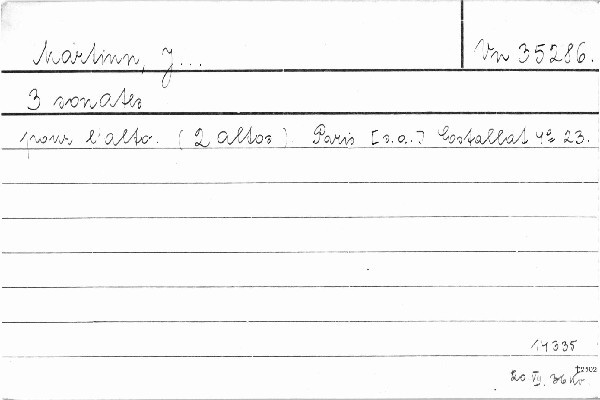 Martinn, J... Vn 35286.
3 sonates
pour l'alto. (2 altos) Paris [s.a.] Costallat 4º 23.
14335
12902
20 VII. 36